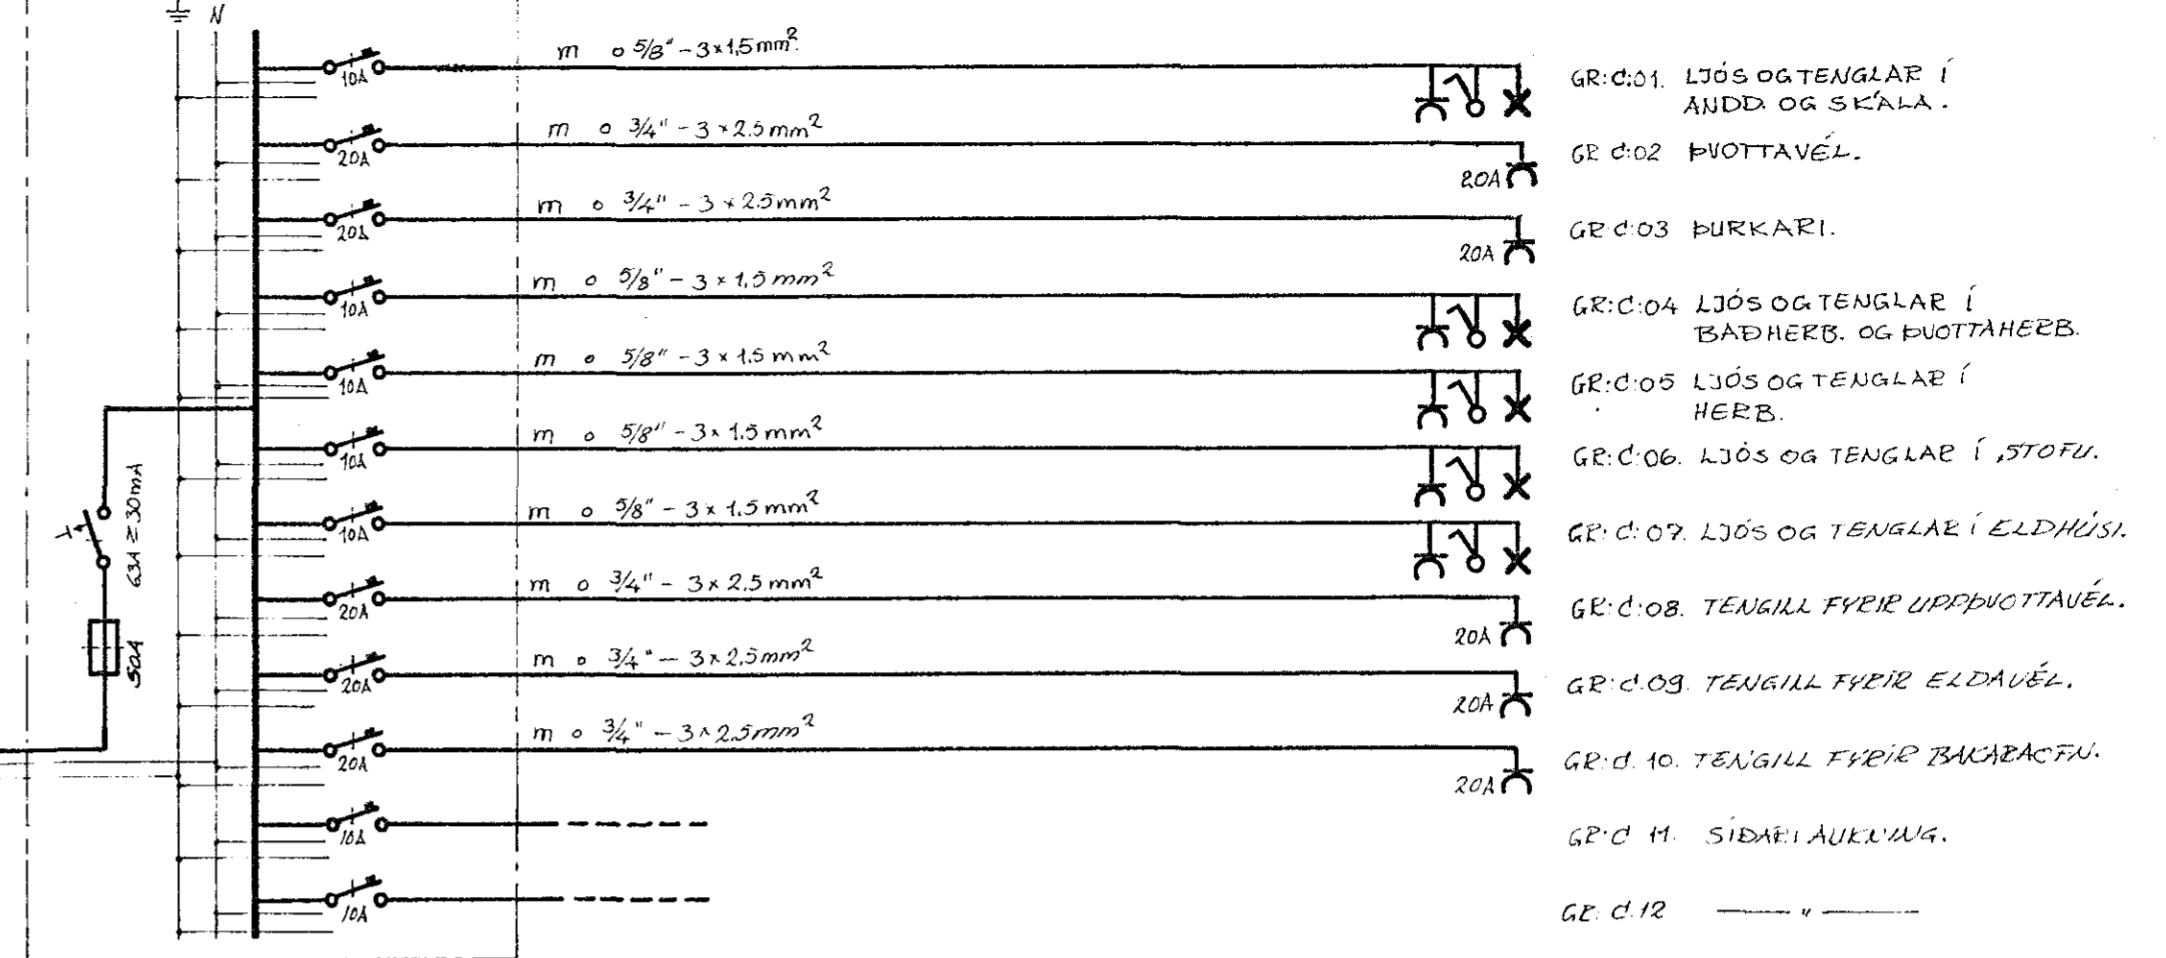 N
10A m o 5/8" - 3x1,5mm² GR:C:01. LJÓS OG TENGLAR Í
ANDD. OG SKÁLA.
20A m o 3/4" - 3x2.5mm² 20A GR C:02 ÞVOTTAVÉL.
20A m o 3/4" - 3x2.5mm² 20A GR C:03 ÞURKARI.
10A m o 5/8" - 3x1,5mm² GR:C:04 LJÓS OG TENGLAR Í
BADHERB. OG ÞVOTTAHERB.
10A m o 5/8" - 3x1.5mm² GR:C:05 LJÓS OG TENGLAR Í
HERB.
10A m o 5/8" - 3x1.5mm² GR:C:06. LJÓS OG TENGLAR Í STOFU.
10A m o 5/8" - 3x1.5mm² GR:C:07. LJÓS OG TENGLAR Í ELDHÚSI.
63A 30mA
50A
20A m o 3/4" - 3x2,5mm² 20A GR:C:08. TENGILL FYRIR UPPÞVOTTAVÉL.
20A m o 3/4" - 3x2,5mm² 20A GR:C:09. TENGILL FYRIR ELDAVÉL.
20A m o 3/4" - 3x2.5mm² 20A GR:C.10. TENGILL FYRIR BAKARAOFN.
10A GR:C 11. SÍDARI AUKNING.
10A GR: C.12 — " —